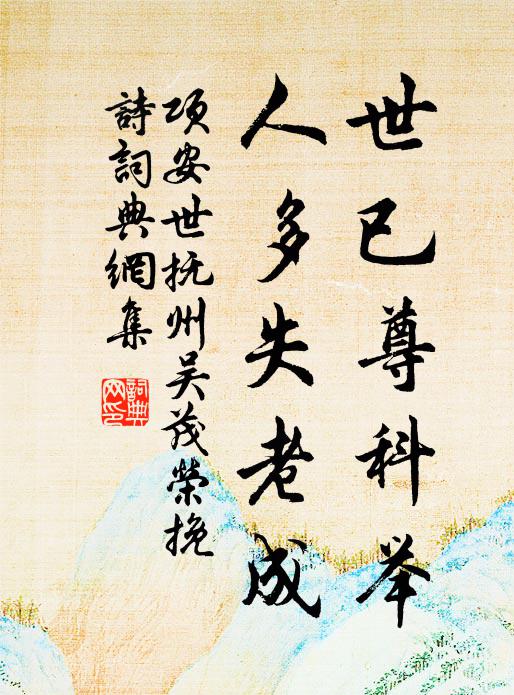 世已尊科举
人多失老成
项安世抚州吴茂荣挽
詩詞典網集
詞典
网印